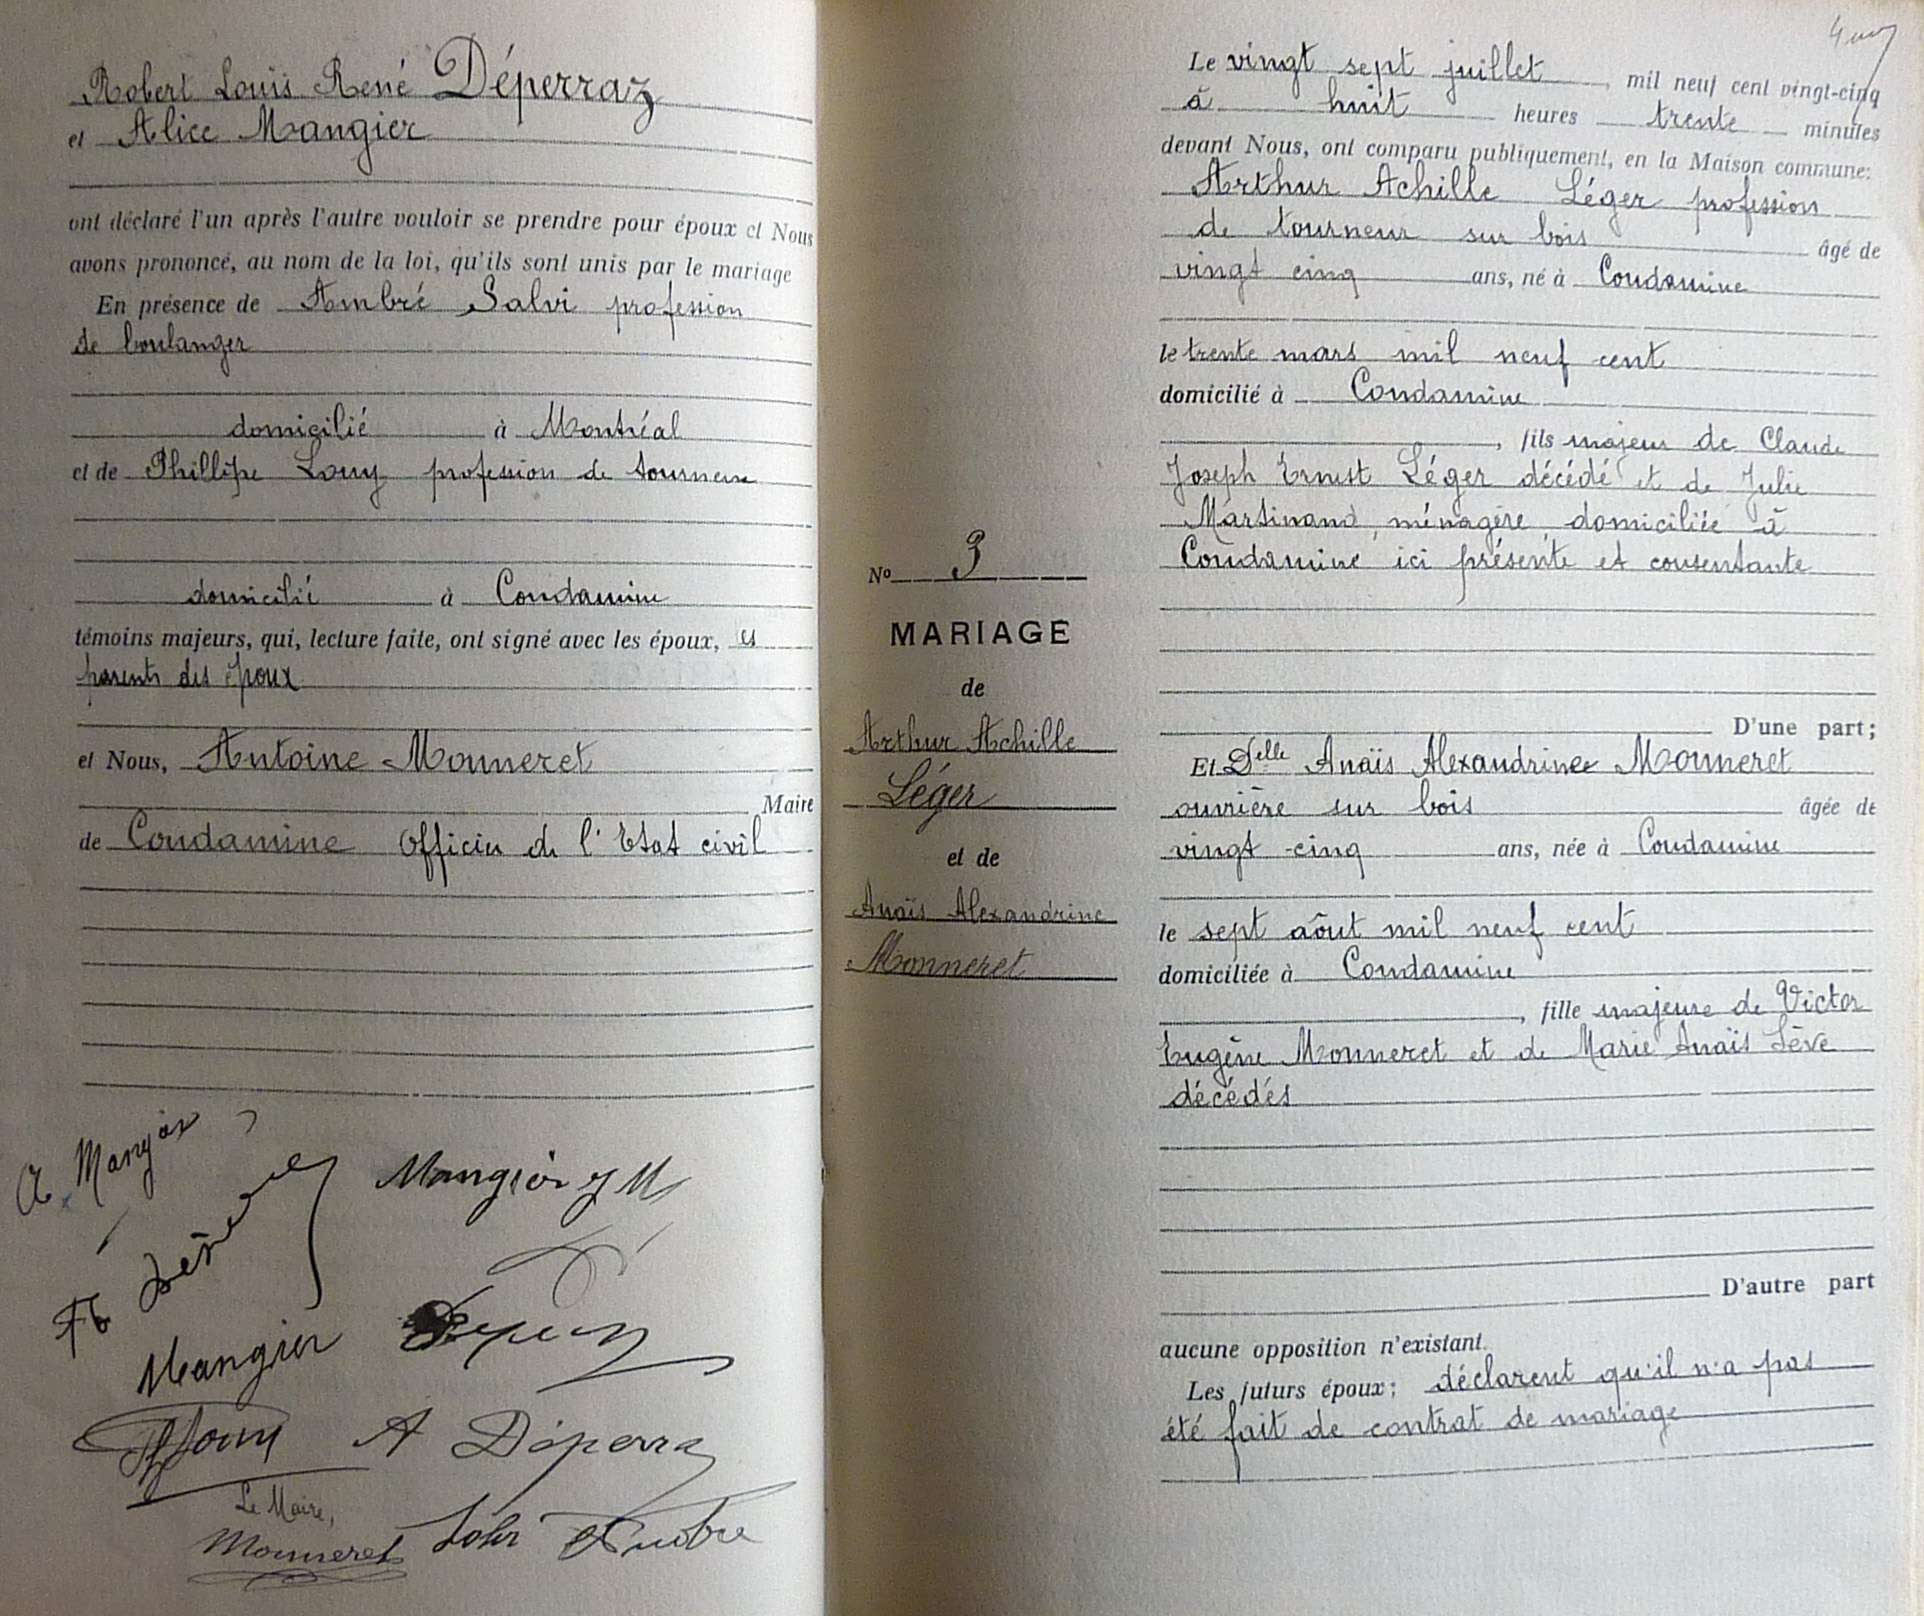 Robert Louis René Déperraz
et Alice Mangier
ont déclaré l'un après l'autre vouloir se prendre pour époux et Nous
avons prononcé, au nom de la loi, qu'ils sont unis par le mariage
En présence de Ambré Salvi profession
de boulanger
domicilié à Montréal
et de Phillipe Louy profession de tourneur
domicilié à Condamine
témoins majeurs, qui, lecture faite, ont signé avec les époux, et
parents des époux
et Nous, Antoine Monneret
Maire
de Condamine Officier de l'Etat civil
Mangier
A Déperraz
Le Maire,
Monneret
4
Le vingt sept juillet, mil neuf cent vingt-cinq
à huit heures trente minutes
devant Nous, ont comparu publiquement, en la Maison commune:
Arthur Achille Léger profession
de tourneur sur bois âgé de
vingt cinq ans, né à Condamine
le trente mars mil neuf cent
domicilié à Condamine
, fils majeur de Claude
Joseph Ernest Léger décédé et de Julie
Martinand, ménagère domiciliée à
Condamine ici présente et consentante
D'une part;
Et Delle Anaïs Alexandrine Monneret
ouvrière sur bois âgée de
vingt-cinq ans, née à Condamine
le sept aôut mil neuf cent
domiciliée à Condamine
, fille majeure de Victor
Eugène Monneret et de Marie Anaïs Sève
décédés
D'autre part
aucune opposition n'existant.
Les futurs époux; déclarent qu'il n'a pas
été fait de contrat de mariage
No 3
MARIAGE
de
Arthur Achille
Léger
et de
Anaïs Alexandrine
Monneret